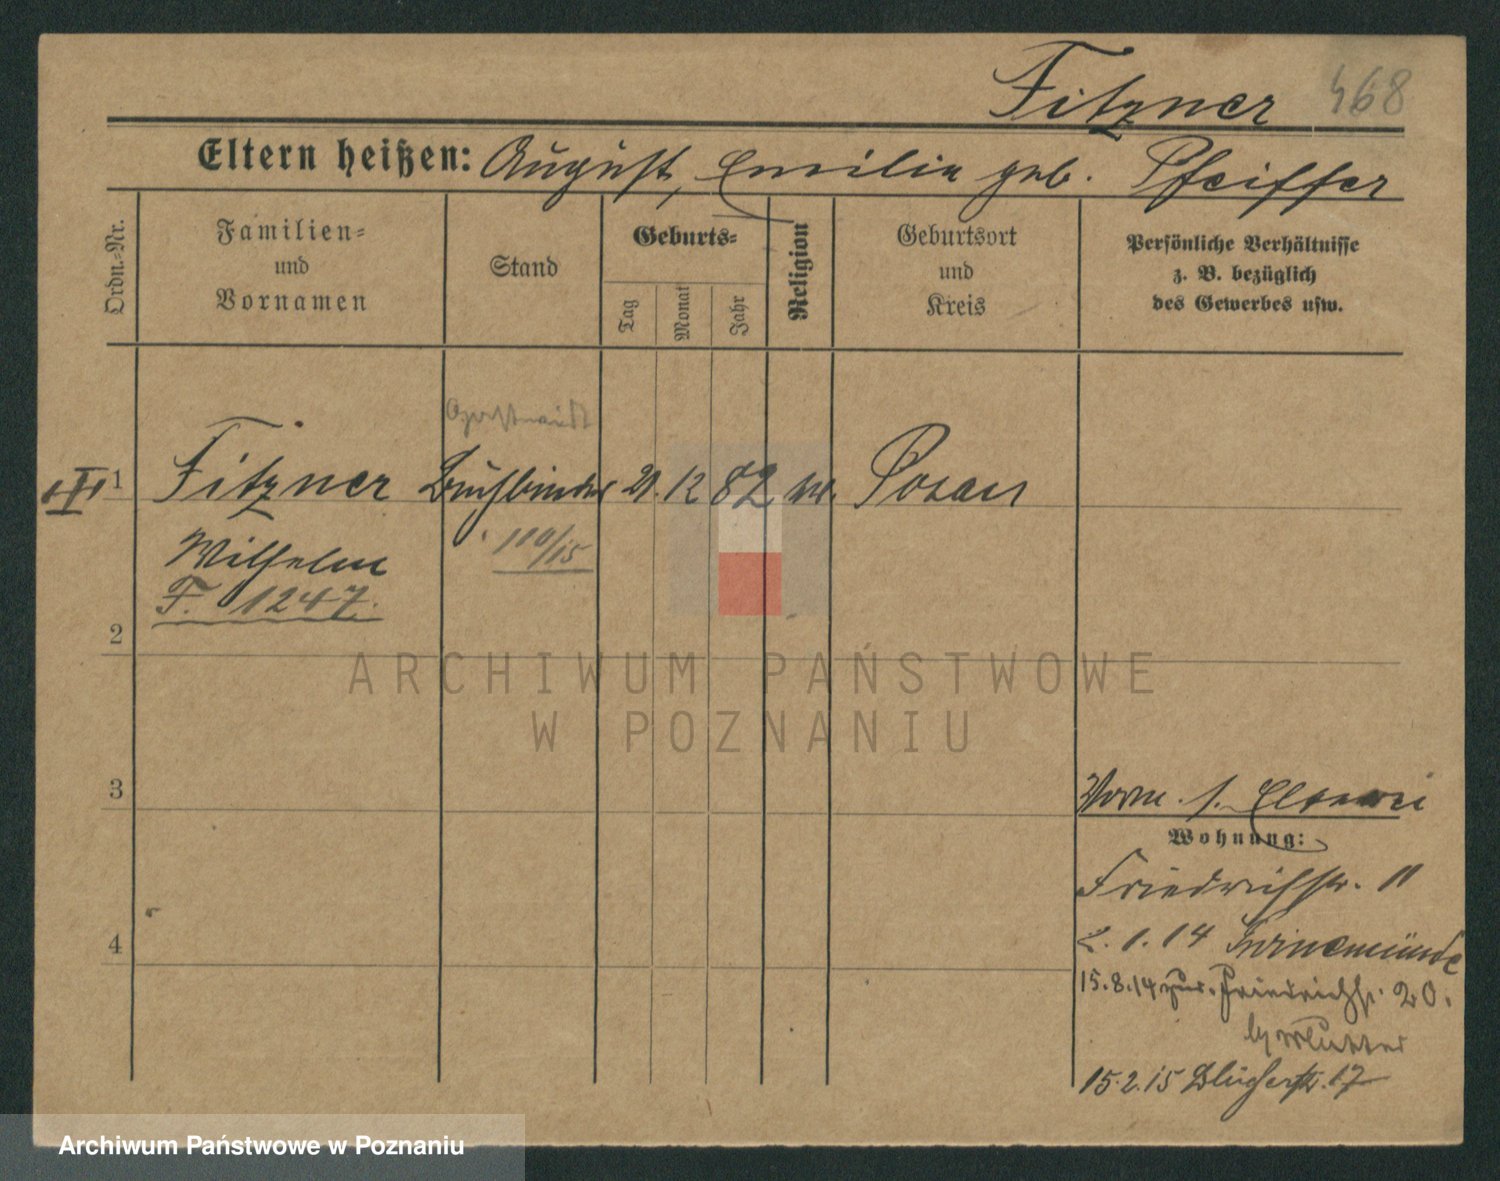 Fitzner 468
Eltern heißen: August, Emilie geb. Pfeiffer
Ordn.-Nr.
Familien-
und
Vornamen
Stand
Geburts-
Tag
Monat
Jahr
Religion
Geburtsort
und
Kreis
Persönliche Verhältnisse
z. B. bezüglich
des Gewerbes usw.
1 Fitzner Buchbinder 12 82 Posen
Wilhelm 110/15
F. 1247.
2
ARCHIWUM PAŃSTWOWE
W POZNANIU
3
Vorm. s. Eltern
Wohnung:
Friedrichstr. 11
4
2. 1. 14 Swinemünde
15.8.14 zur. Friedrichstr. 20.
b/ Mutter
15.2.15 Blücherstr. 17
Archiwum Państwowe w Poznaniu